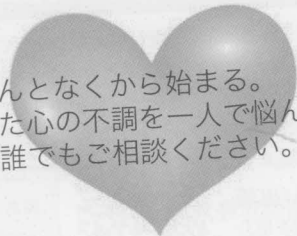 んとなくから始まる。
た心の不調を一人で悩ん
誰でもご相談ください。